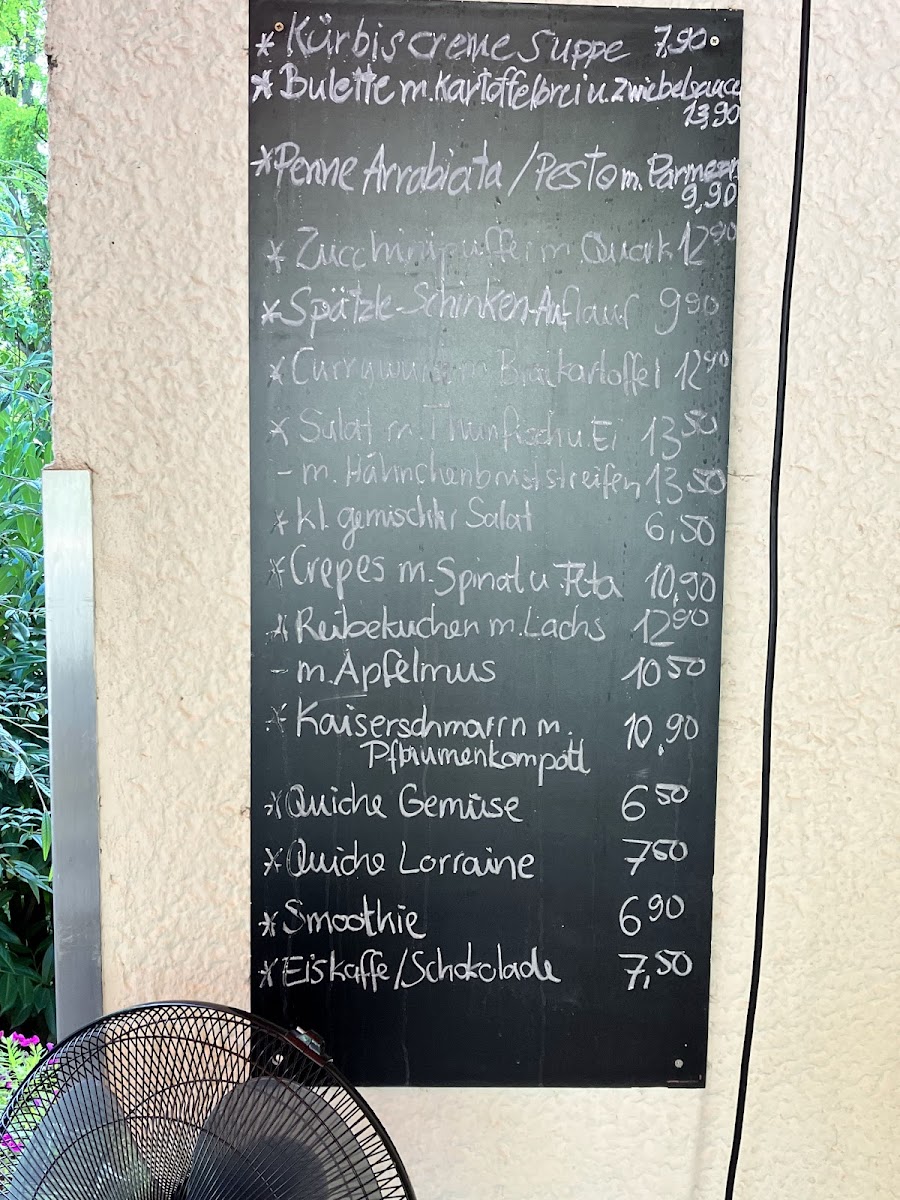 * Kürbiscremesuppe 7,90
* Bulette m. Kartoffelbrei u. Zwiebelsauce
13,90
* Penne Arrabiata / Pesto m. Parmesan
9,90
* Zucchinipuffer m Quark 12 90
* Spätzle-Schinken-Auflauf 9 90
* Currywurst m Bratkartoffel 12 90
* Salat m. Thunfisch u. Ei 13 50
- m. Hähnchenbruststreifen 13 50
* kl. gemischter Salat 6,50
* Crepes m. Spinat u. Feta 10,90
* Reibekuchen m. Lachs 12 90
- m. Apfelmus 10 50
* Kaiserschmarrn m. 10,90
Pflaumenkompott
* Quiche Gemüse 6 50
* Quiche Lorraine 7 50
* Smoothie 6 90
* Eiskaffe/Schokolade 7,50